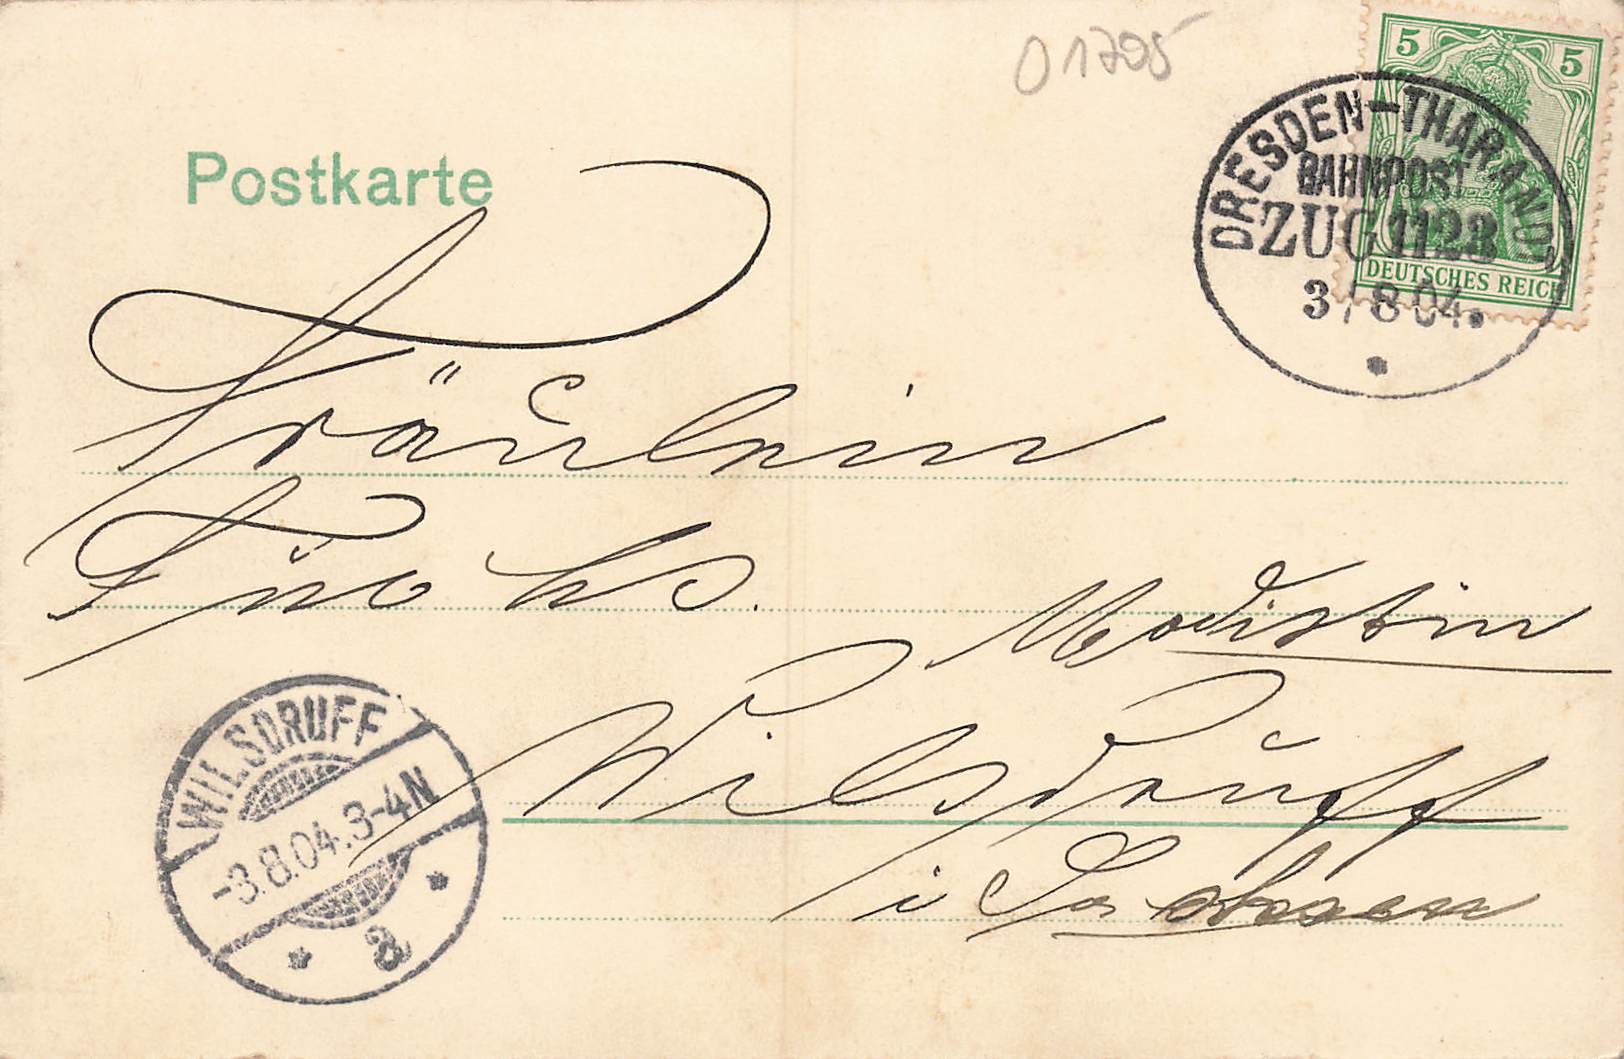 01795
5 5
DEUTSCHES REICH
DRESDEN-THARANDT
BAHNPOST
ZUG 1123
3/8 04.
Postkarte
Fräulein
Fuchs.
Modistin
Wilsdruff
i Sachsen
WILSDRUFF
-3.8.04.3-4N
a